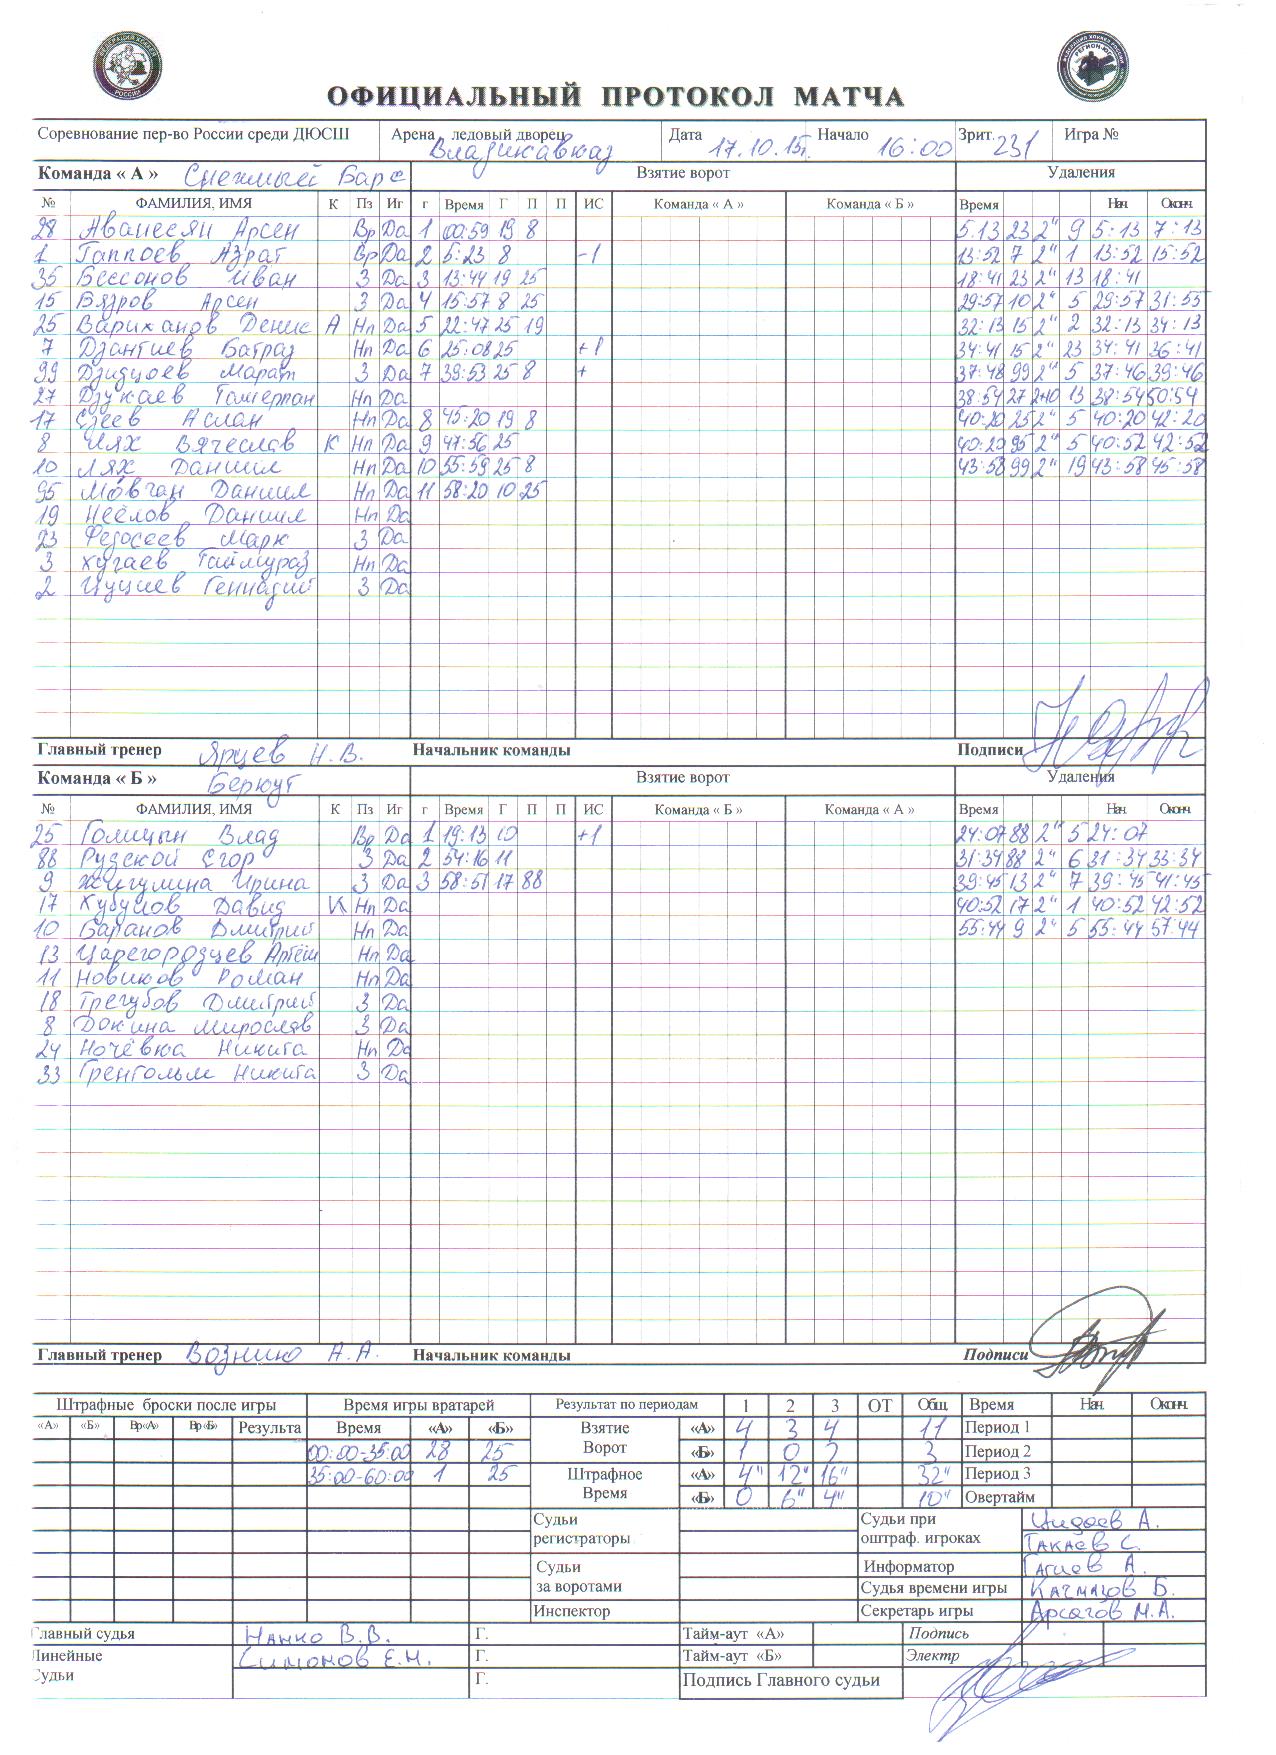 ОФИЦИАЛЬНЫЙ ПРОТОКОЛ МАТЧА
Соревнование пер-во России среди ДЮСШ Арена ледовый дворец Владикавказ Дата 17.10.15г. Начало 16:00 Зрит. 231 Игра №
Команда « А » Снежный Барс Взятие ворот Удаления
№ ФАМИЛИЯ, ИМЯ К Пз Иг г Время Г П П ИС Команда « А » Команда « Б » Время Нач. Оконч.
28 Аванесян Арсен Вр Да 1 00:59 19 8 5:13 23 2" 9 5:13 7:13
1 Гаппоев Азрат Вр Да 2 5:23 8 -1 13:52 7 2" 1 13:52 15:52
35 Бессонов Иван З Да 3 13:44 19 25 18:41 23 2" 13 18:41
15 Вязров Арсен З Да 4 15:57 8 25 29:57 10 2" 5 29:57 31:55
25 Вариханов Денис А Нп Да 5 22:47 25 19 32:13 15 2" 2 32:13 34:13
7 Дзантиев Батраз Нп Да 6 25:08 25 +1 34:41 15 2" 23 34:41 36:41
99 Дзидзоев Марат З Да 7 39:53 25 8 + 37:48 99 2" 5 37:46 39:46
27 Дзукаев Нп Да 38:54 27 2+10 13 38:54 50:54
17 Езеев Аслан Нп Да 8 45:20 19 8 40:20 25 2" 5 40:20 42:20
8 Лях Вячеслав К Нп Да 9 47:56 25 40:20 95 2" 5 40:52 42:52
10 Лях Даниил Нп Да 10 55:59 25 8 43:58 99 2" 19 43:58 45:58
95 Мовчан Даниил Нп Да 11 58:20 10 25
19 Неелов Даниил Нп Да
23 Федосеев Марк З Да
3 Хугаев Таймураз Нп Да
2 Цуциев Геннадий З Да
Главный тренер Ярцев Н.В. Начальник команды Подписи
Команда « Б » Беркут Взятие ворот Удаления
№ ФАМИЛИЯ, ИМЯ К Пз Иг г Время Г П П ИС Команда « Б » Команда « А » Время Нач. Оконч.
25 Голицын Влад Вр Да 1 19:13 10 +1 24:07 88 2" 5 24:07
88 Рудской Егор З Да 2 54:16 11 31:34 88 2" 6 31:34 33:34
9 Жигулина Ирина З Да 3 58:51 17 88 39:45 13 2" 7 39:45 41:45
17 Кубулов Давид К Нп Да 40:52 17 2" 1 40:52 42:52
10 Баранов Дмитрий Нп Да 55:44 9 2" 5 55:44 57:44
13 Царегородцев Артём Нп Да
11 Новиков Роман Нп Да
18 Трегубов Дмитрий З Да
8 Докина Мирослав З Да
24 Ночёвка Никита Нп Да
33 Гренгольм Никита З Да
Главный тренер Вознино А.А. Начальник команды Подписи
Штрафные броски после игры Время игры вратарей Результат по периодам 1 2 3 ОТ Общ. Время Нач. Оконч.
«А» «Б» Вр«А» Вр«Б» Результа Время «А» «Б» Взятие Ворот «А» 4 3 4 11 Период 1
00:00-35:00 28 25 «Б» 1 0 2 3 Период 2
35:00-60:00 1 25 Штрафное Время «А» 4" 12" 16" 32" Период 3
«Б» 0 6" 4" 10" Овертайм
Судьи регистраторы Судьи при оштраф. игроках Цидоев А.
Такаев С.
Судьи за воротами Информатор Гагиев А.
Судья времени игры Качмазов Б.
Инспектор Секретарь игры Арсагов М.А.
Главный судья Нанко В.В. Г. Тайм-аут «А» Подпись
Линейные Симонов Е.Н. Г. Тайм-аут «Б» Электр
Судьи Г. Подпись Главного судьи